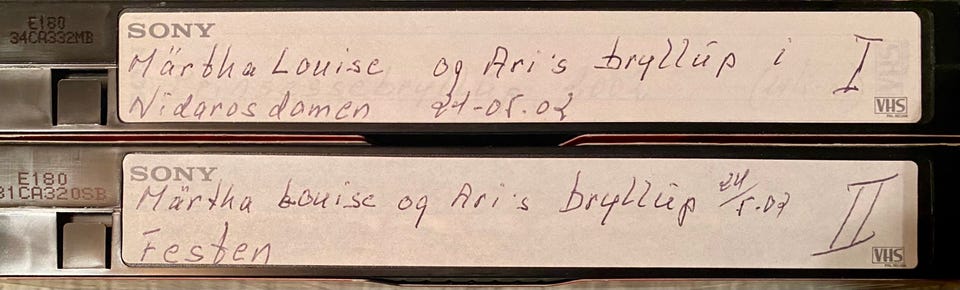 E180
34CA332MB
SONY
Märtha Louise og Ari's bryllup i
Nidarosdomen 24-05.02
I
VHS
E180
31CA320SB
SONY
Märtha Louise og Ari's bryllup 24/5.02
Festen
II
VHS